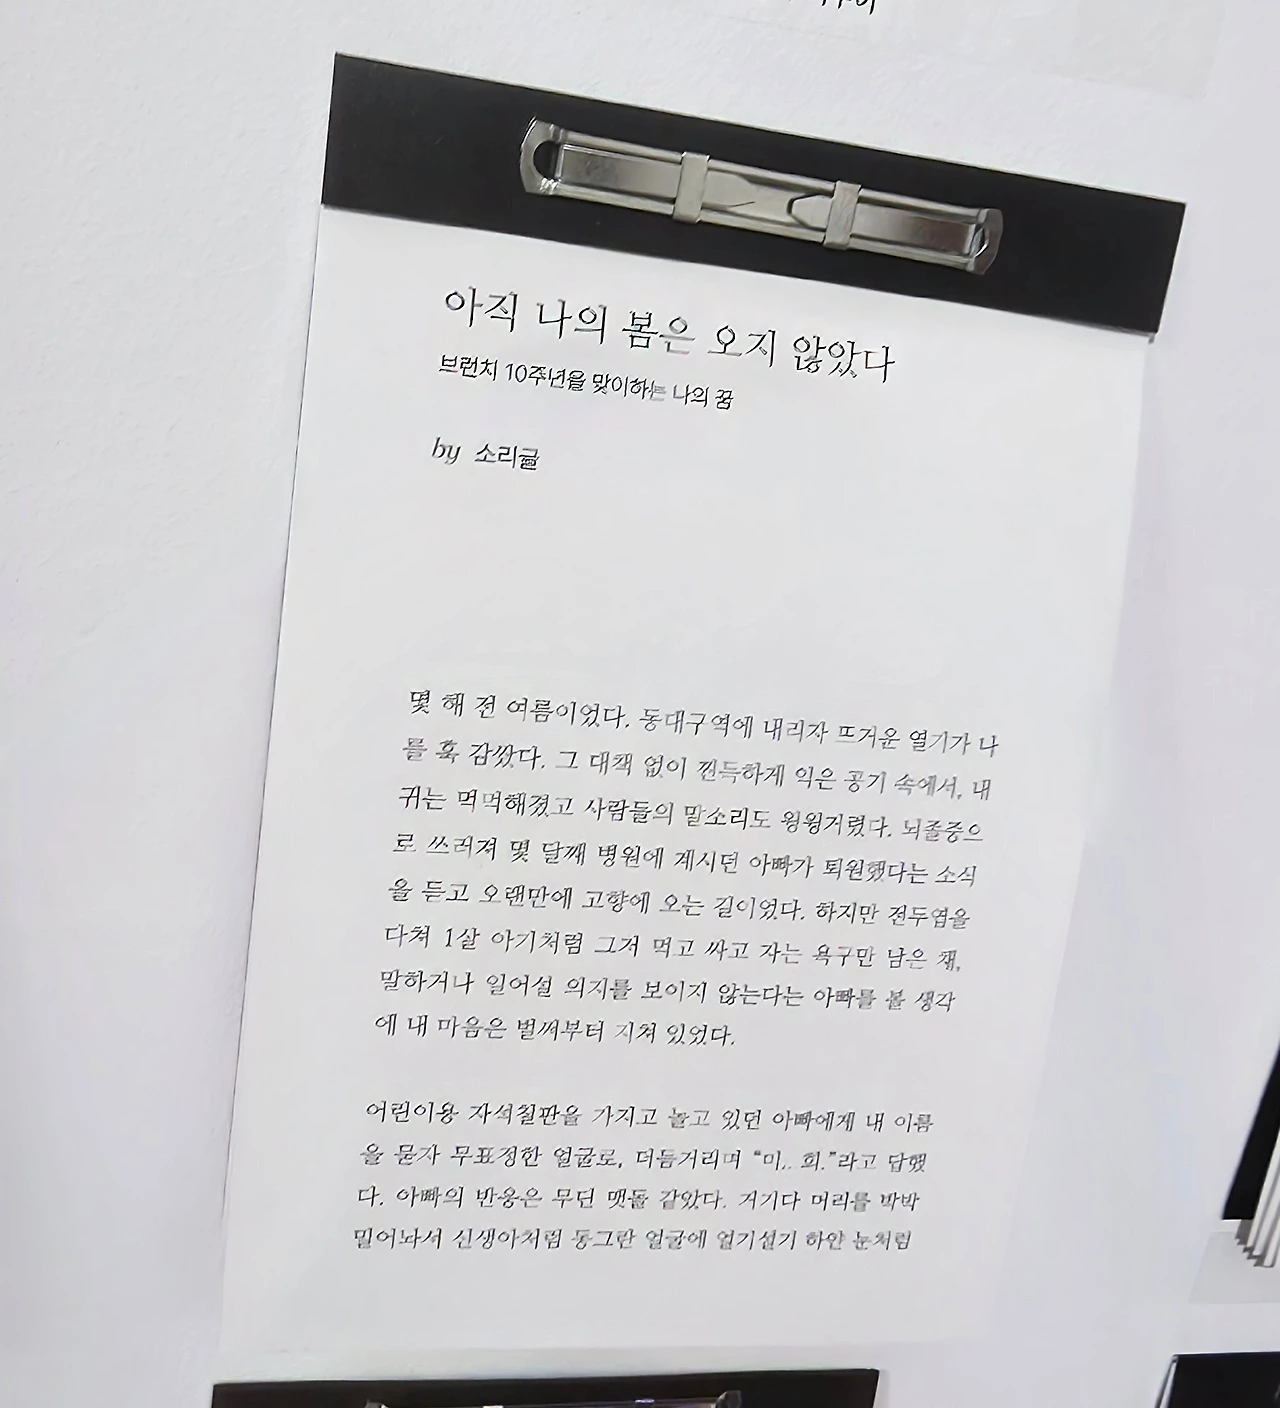 아직 나의 봄은 오지 않았다
브런치 10주년을 맞이하는 나의 꿈
by 소리글
몇 해 전 여름이었다. 동대구역에 내리자 뜨거운 열기가 나
를 훅 감쌌다. 그 대책 없이 찐득하게 익은 공기 속에서, 내
귀는 먹먹해졌고 사람들의 말소리도 윙윙거렸다. 뇌졸중으
로 쓰러져 몇 달째 병원에 계시던 아빠가 퇴원했다는 소식
을 듣고 오랜만에 고향에 오는 길이었다. 하지만 전두엽을
다쳐 1살 아기처럼 그저 먹고 싸고 자는 욕구만 남은 채,
말하거나 일어설 의지를 보이지 않는다는 아빠를 볼 생각
에 내 마음은 벌써부터 지쳐 있었다.
어린이용 자석칠판을 가지고 놀고 있던 아빠에게 내 이름
을 묻자 무표정한 얼굴로, 더듬거리며 “미.. 희.”라고 답했
다. 아빠의 반응은 무딘 맷돌 같았다. 거기다 머리를 박박
밀어놔서 신생아처럼 동그란 얼굴에 얼기설기 하얀 눈처럼